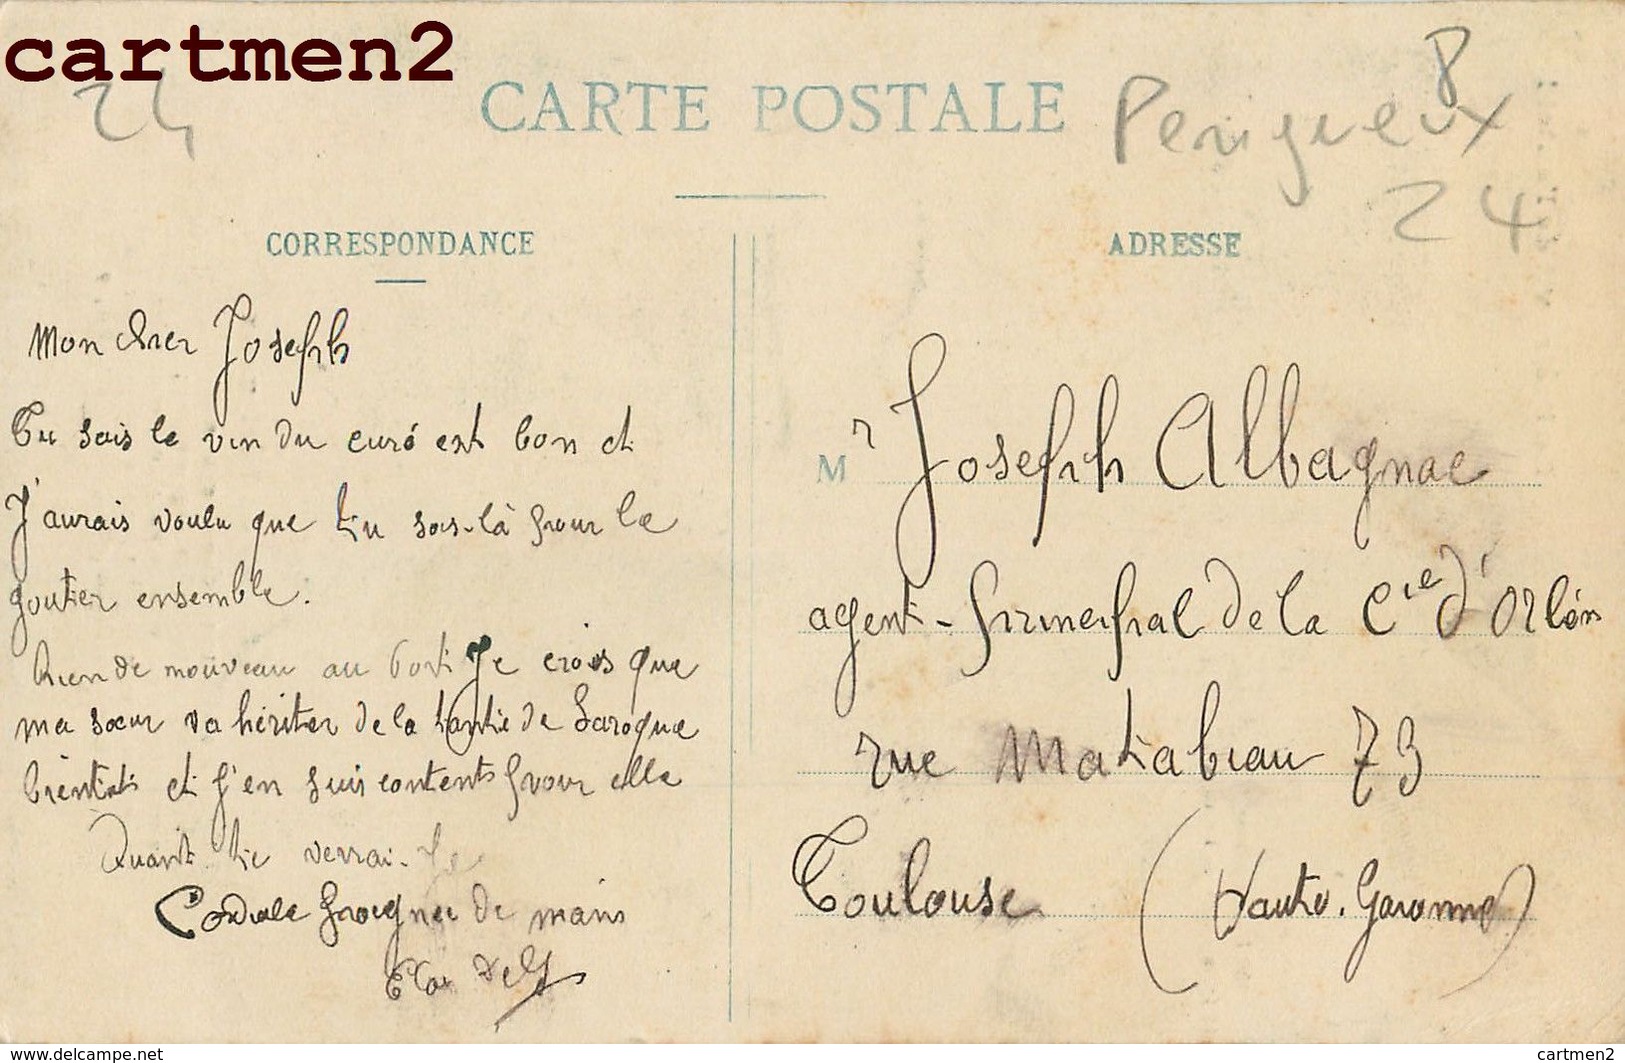 cartmen2
24
CARTE POSTALE
8
Perigueux
24
CORRESPONDANCE
Mon cher Joseph
Tu sais le vin du curé est bon et
J'aurais voulu que tu sois-là pour le
goutier ensemble.
Rien de nouveau au Je crois que
ma sœur va hériter de la tante de Laroque
bientôt et j'en suis contents pour elle
Quant te verrai-Je
Cordiale poignée de mains
ADRESSE
Mr Joseph Albagnac
agent-principal de la Cie d'Orléns
rue Matabiau 73
Toulouse (Haute. Garonne)
www.delcampe.net
cartmen2